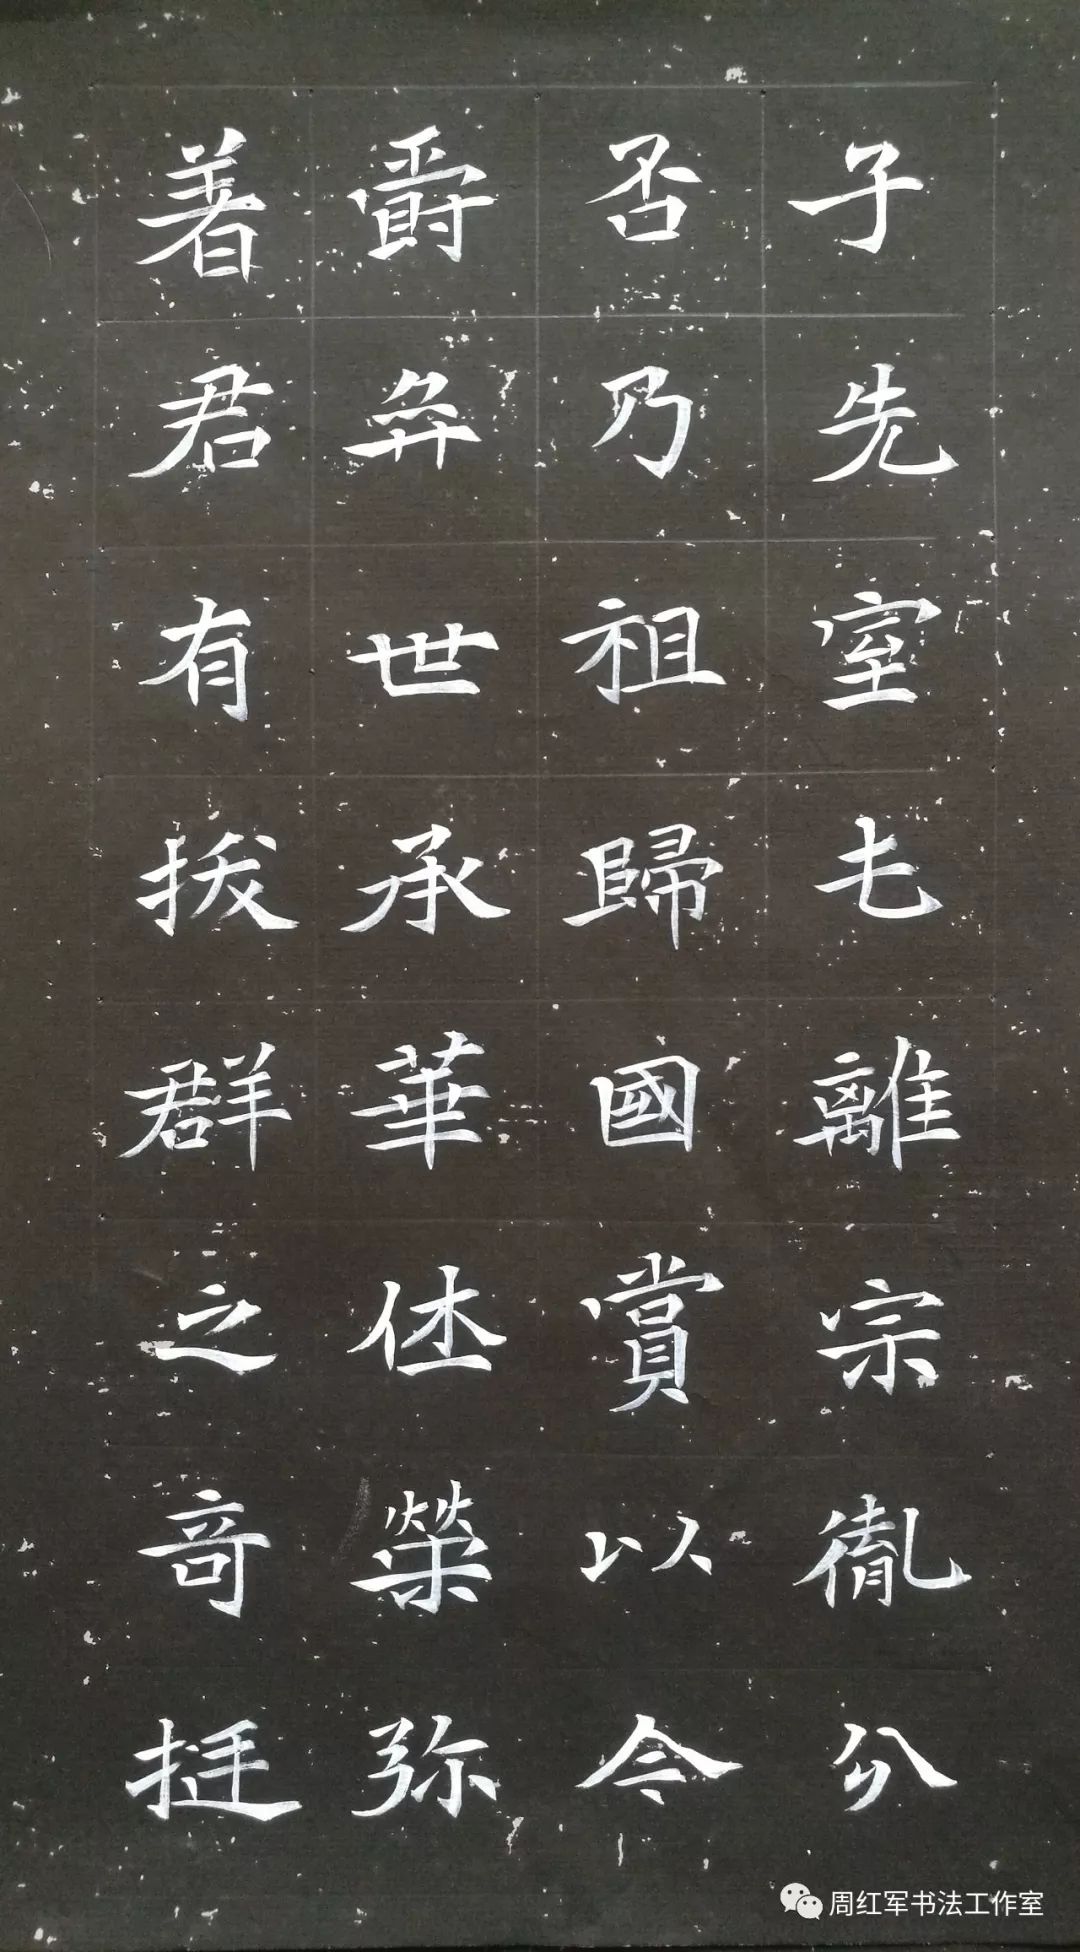 子先室七離宗胤分
否乃祖歸國賞以令
爵弈世承華休榮弥
着君有拔群之奇挺
周红军书法工作室